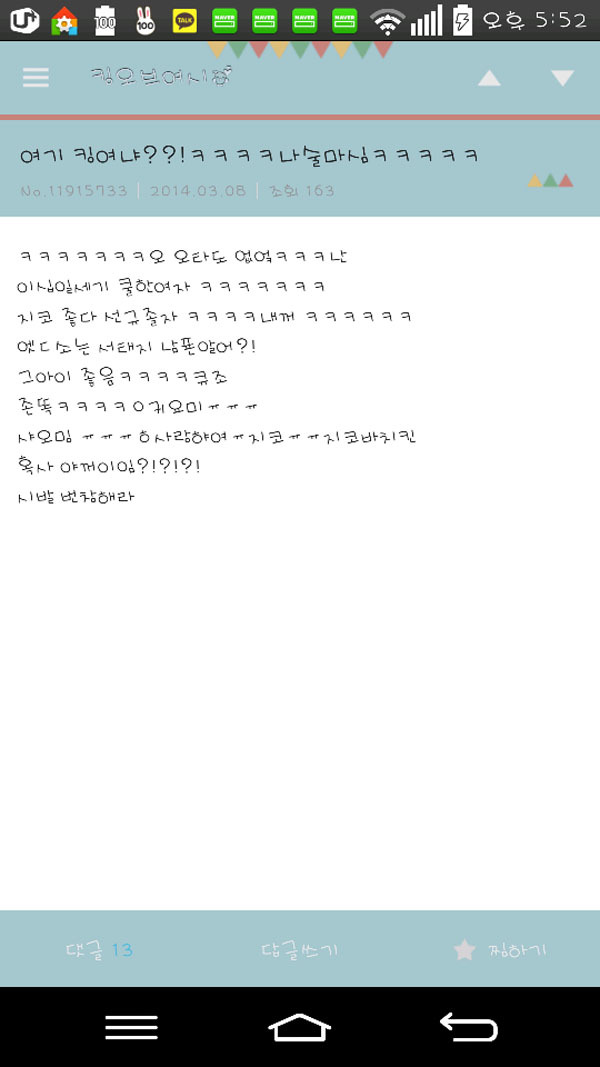 U+ 100 100 TALK NAVER NAVER NAVER NAVER 오후 5:52
킹오브여시
여기 킹여냐??!ㅋㅋㅋㅋ나술마심ㅋㅋㅋㅋㅋ
No.11915733 | 2014.03.08 | 조회 163
ㅋㅋㅋㅋㅋㅋㅋ오 오타도 없엌ㅋㅋㅋ난
이십일세기 쿨한여자 ㅋㅋㅋㅋㅋㅋㅋ
지코 좋다 선규졸자 ㅋㅋㅋㅋ내꺼 ㅋㅋㅋㅋㅋㅋ
옛디소는 서태지 남폔알어?!
그아이 좋음ㅋㅋㅋㅋ큐조
존똑ㅋㅋㅋㅋㅇ귀요미ㅠㅠㅠ
샤오밈 ㅠㅠㅠㅎ사랑햐여ㅠ지코ㅠㅠ지코바치킨
혹사 야꺼이임?!?!?!
시발 번창해라
댓글 13
답글쓰기
찜하기